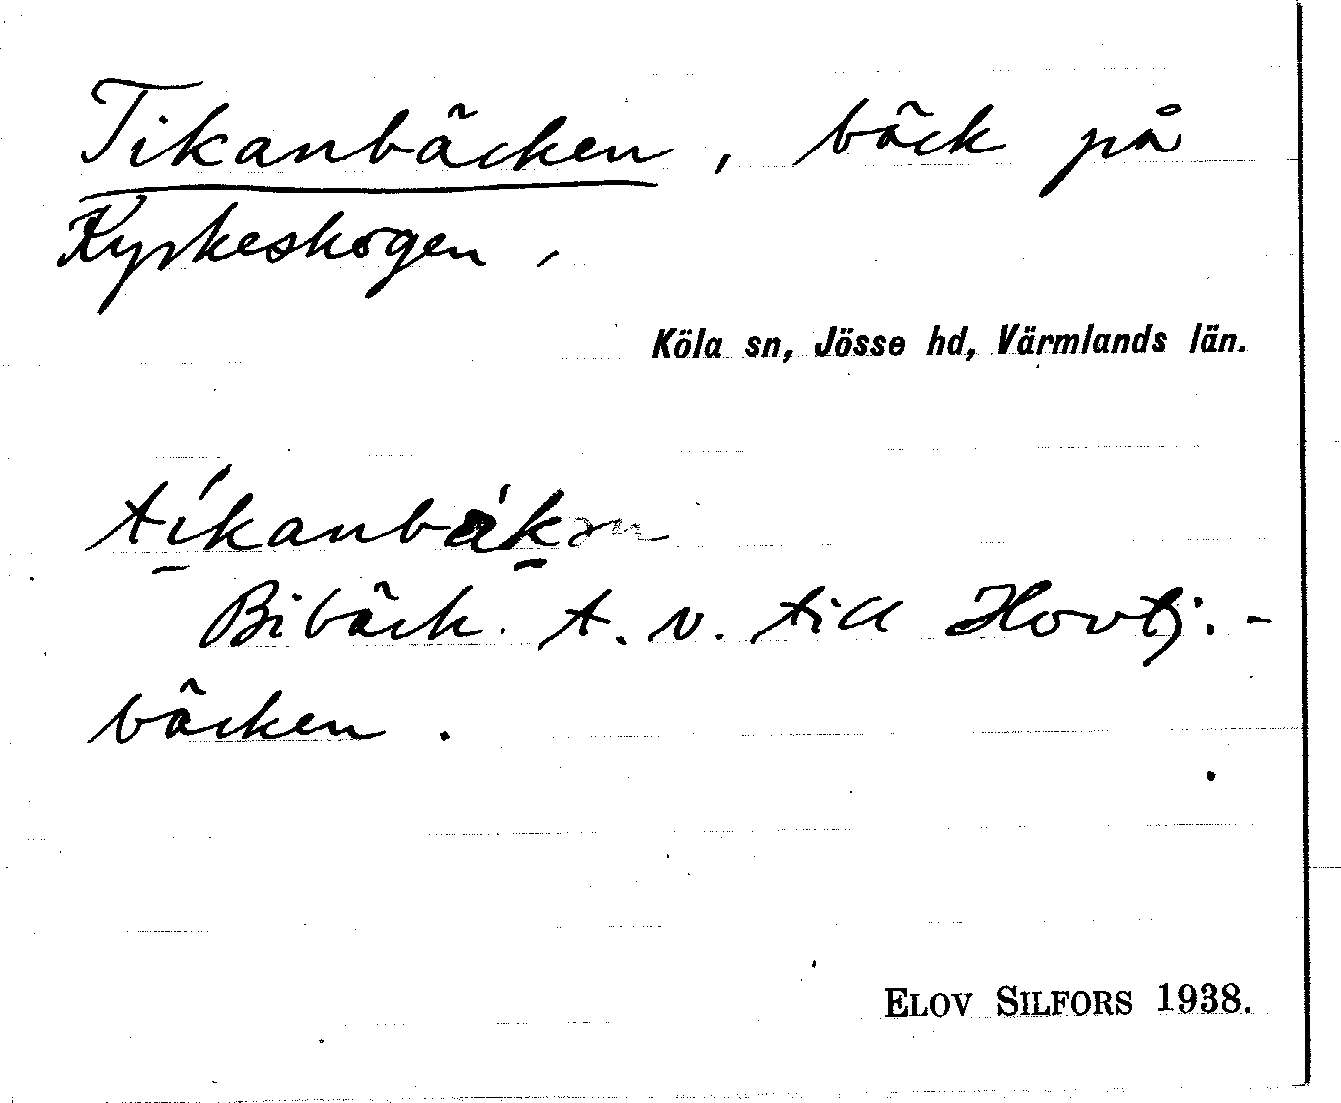 Tikanbäcken, bäck på
Kyrkeskogen,
Köla sn, Jösse hd, Värmlands län.
Bibäck t. v. till Hovtj:-
bäcken.
ELOV SILFORS 1938.